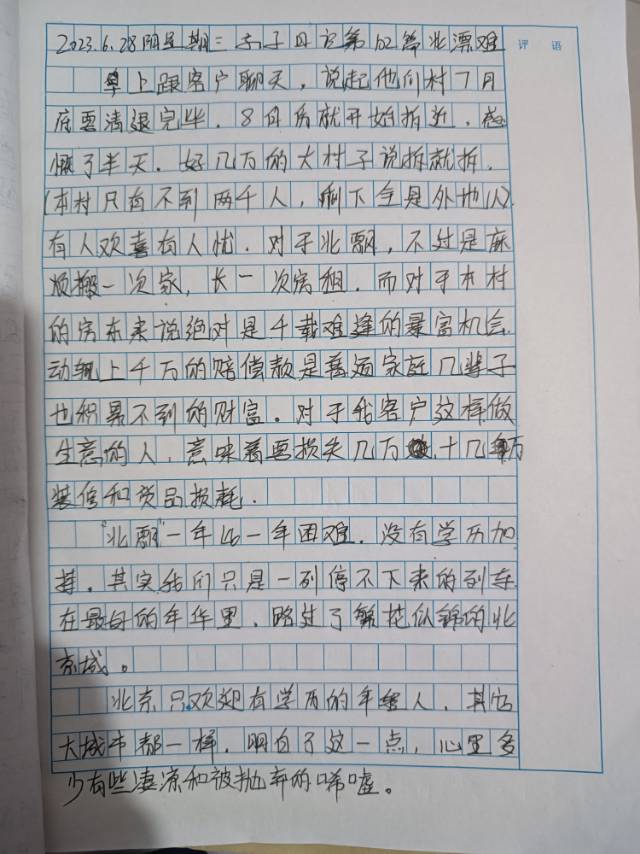 2023.6.28阴星期三亲子日记第102篇北漂难
评 语
早上跟客户聊天，说起他们村7月
底要清退完毕，8月后就开始拆迁，感
慨了半天，好几万的大村子说拆就拆，
(本村只有不到两千人，剩下全是外地人)
有人欢喜有人忧．对于北飘，不过是麻
烦搬一次家，长一次房租，而对于本村
的房东来说绝对是千载难逢的暴富机会
动辄上千万的赔偿款是普通家庭几辈子
也积累不到的财富．对于我客户这样做
生意的人，意味着要损失几万 十几万
装修和货品损耗．
"北飘"一年比一年困难．没有学历加
持，其实我们只是一列停不下来的列车
在最好的年华里，路过了繁花似锦的北
京城。
北京只欢迎有学历的年轻人，其它
大城市都一样，明白了这一点，心里多
少有些凄凉和被抛弃的唏嘘。